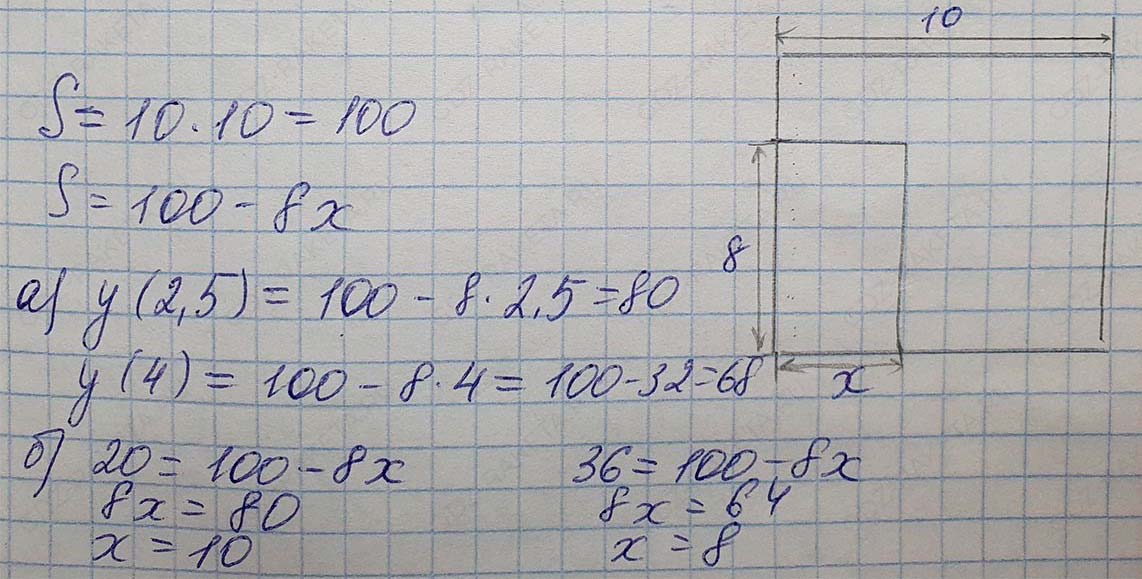 10
S = 10 · 10 = 100
S = 100 - 8x
8
а) y (2,5) = 100 - 8 · 2,5 = 80
y (4) = 100 - 8 · 4 = 100 - 32 = 68
x
б) 20 = 100 - 8x
36 = 100 - 8x
8x = 80
8x = 64
x = 10
x = 8